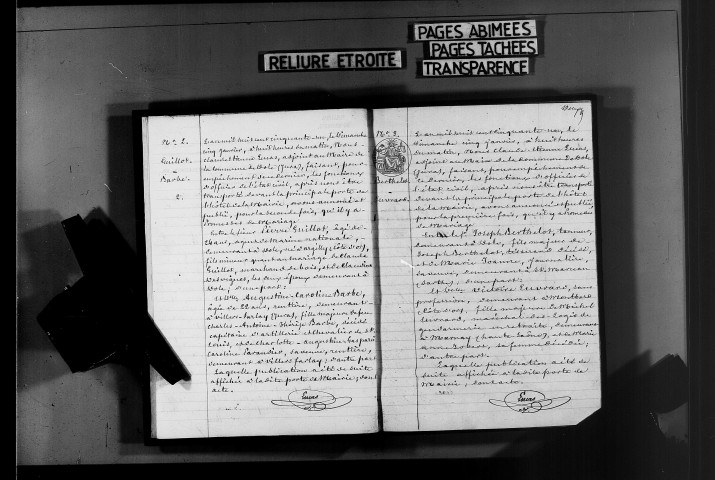 PAGES ABIMÉES
PAGES TACHÉES
RELIURE ETROITE
TRANSPARENCE
No. 2.
Guillot
&
Barbe.
2.
L'an mil huit cent cinquante-un, le Dimanche
cinq janvier, à huit heures du matin, Nous
Claude Etienne Lucas, adjoint au Maire de
la commune de Dole (Jura), faisant, pour
empêchement de ce dernier, les fonctions
d'officier de l'état civil, après nous être
transporté devant la principale porte de
l'hôtel de la Mairie, avons annoncé et
publié, pour la seconde fois, qu'il y a
promesse de Mariage
Entre le sieur Pierre Guillot, âgé de
ans, agent de marine nationale,
demeurant à Dole, né à (Côte d'or),
fils mineur quant au mariage de Claude
Guillot, marchand de bois, et de Claudine
Desvignes, les deux époux demeurant à
Dole, d'une part;
Et Dlle Augustine-Caroline Barbe,
âgée de 22 ans, rentière, demeurant
à Villers-Farlay (Jura), fille majeure de feu
Charles-Antoine-Thérèse Barbe, décédé
capitaine d'artillerie et chevalier de St.
Louis, et de Charlotte-Augustine-Gasparine
Caroline Parandier, sa veuve, rentière,
demeurant à Villers farlay, d'autre part
Laquelle publication a été de suite
affichée à la dite porte de Mairie, dont
acte.
Lucas
No. 3.
Berthelot
&
Levrard
L'an mil huit cent cinquante-un, le
Dimanche cinq janvier, à huit heures
du matin, Nous Claude-Etienne Lucas,
adjoint au Maire de la commune de Dole
(Jura), faisant, pour empêchement de
ce dernier, les fonctions d'officier de
l'état civil, après nous être transporté
devant la principale porte de l'hôtel
de la Mairie, avons annoncé et publié,
pour la première fois, qu'il y a promesse
de Mariage
Entre le sr. Joseph Berthelot, tanneur,
demeurant à Dole, fils majeur de
Joseph Berthelot, tisserand, décédé,
et de Marie Joanne, journalière,
sa veuve, demeurant à St. Marceau
(Sarthe), d'une part;
Et Delle Victoire Levrard, sans
profession, demeurant à Montbard
(Côte d'or), fille majeure de Michel
Levrard, maréchal des logis de
gendarmerie en retraite, demeurant
à Marnay (haute Saône), et de Marie
Anne sa femme, décédée,
d'autre part.
Laquelle publication a été de
suite affichée à la dite porte de
Mairie, dont acte.
Lucas